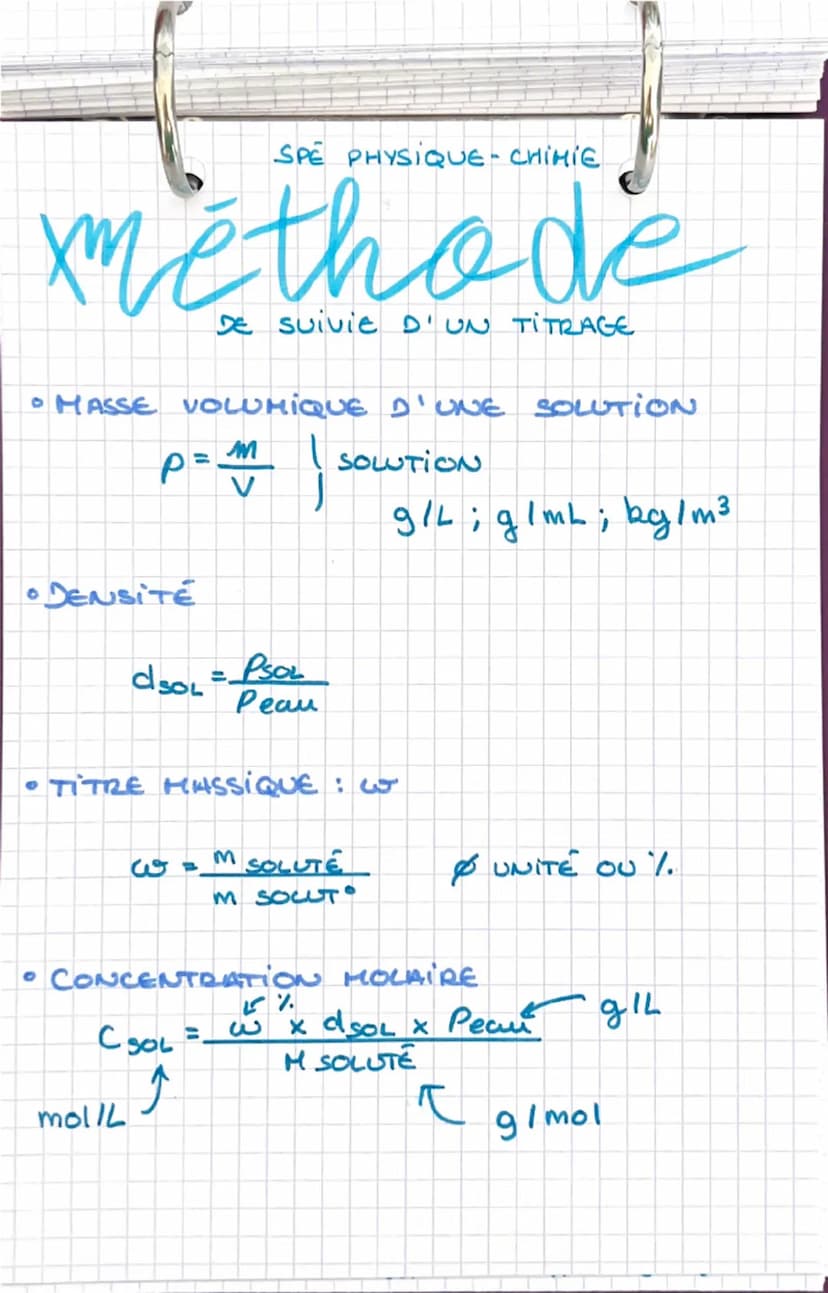 SPÉ PHYSIQUE-CHIMIE
méthode
DE SUIVIE D'UN TITRAGE
• MASSE VOLUMIQUE D'UNE SOLUTION
ρ = m/V } SOLUTION
g/L ; g/mL ; kg/m³
• DENSITÉ
dSOL = ρSOL/ρeau
• TITRE MASSIQUE : ω
ω = m SOLUTÉ/m SOLUT° ∅ UNITÉ OU %
• CONCENTRATION MOLAIRE
%
CSOL = ω x dSOL x ρeau/M SOLUTÉ ← g/L
mol/L
g/mol